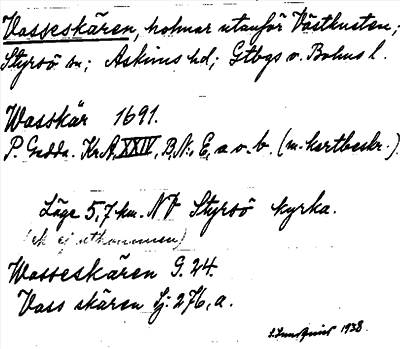 Vasseskären, holmar utanför Västkusten;
Styrsö sn; Askims hd; Gtbgs o. Bohus l.
Wasskär 1691.
P. Gedda. KrA, XXIV, B. N:, E, a o. b. (m. kartbeskr.).
Läge 5,7 km. NV Styrsö kyrka.
(ek ej utkommen)
Wasseskären G. 24.
Vass skären Sj. 276, a.
1938.